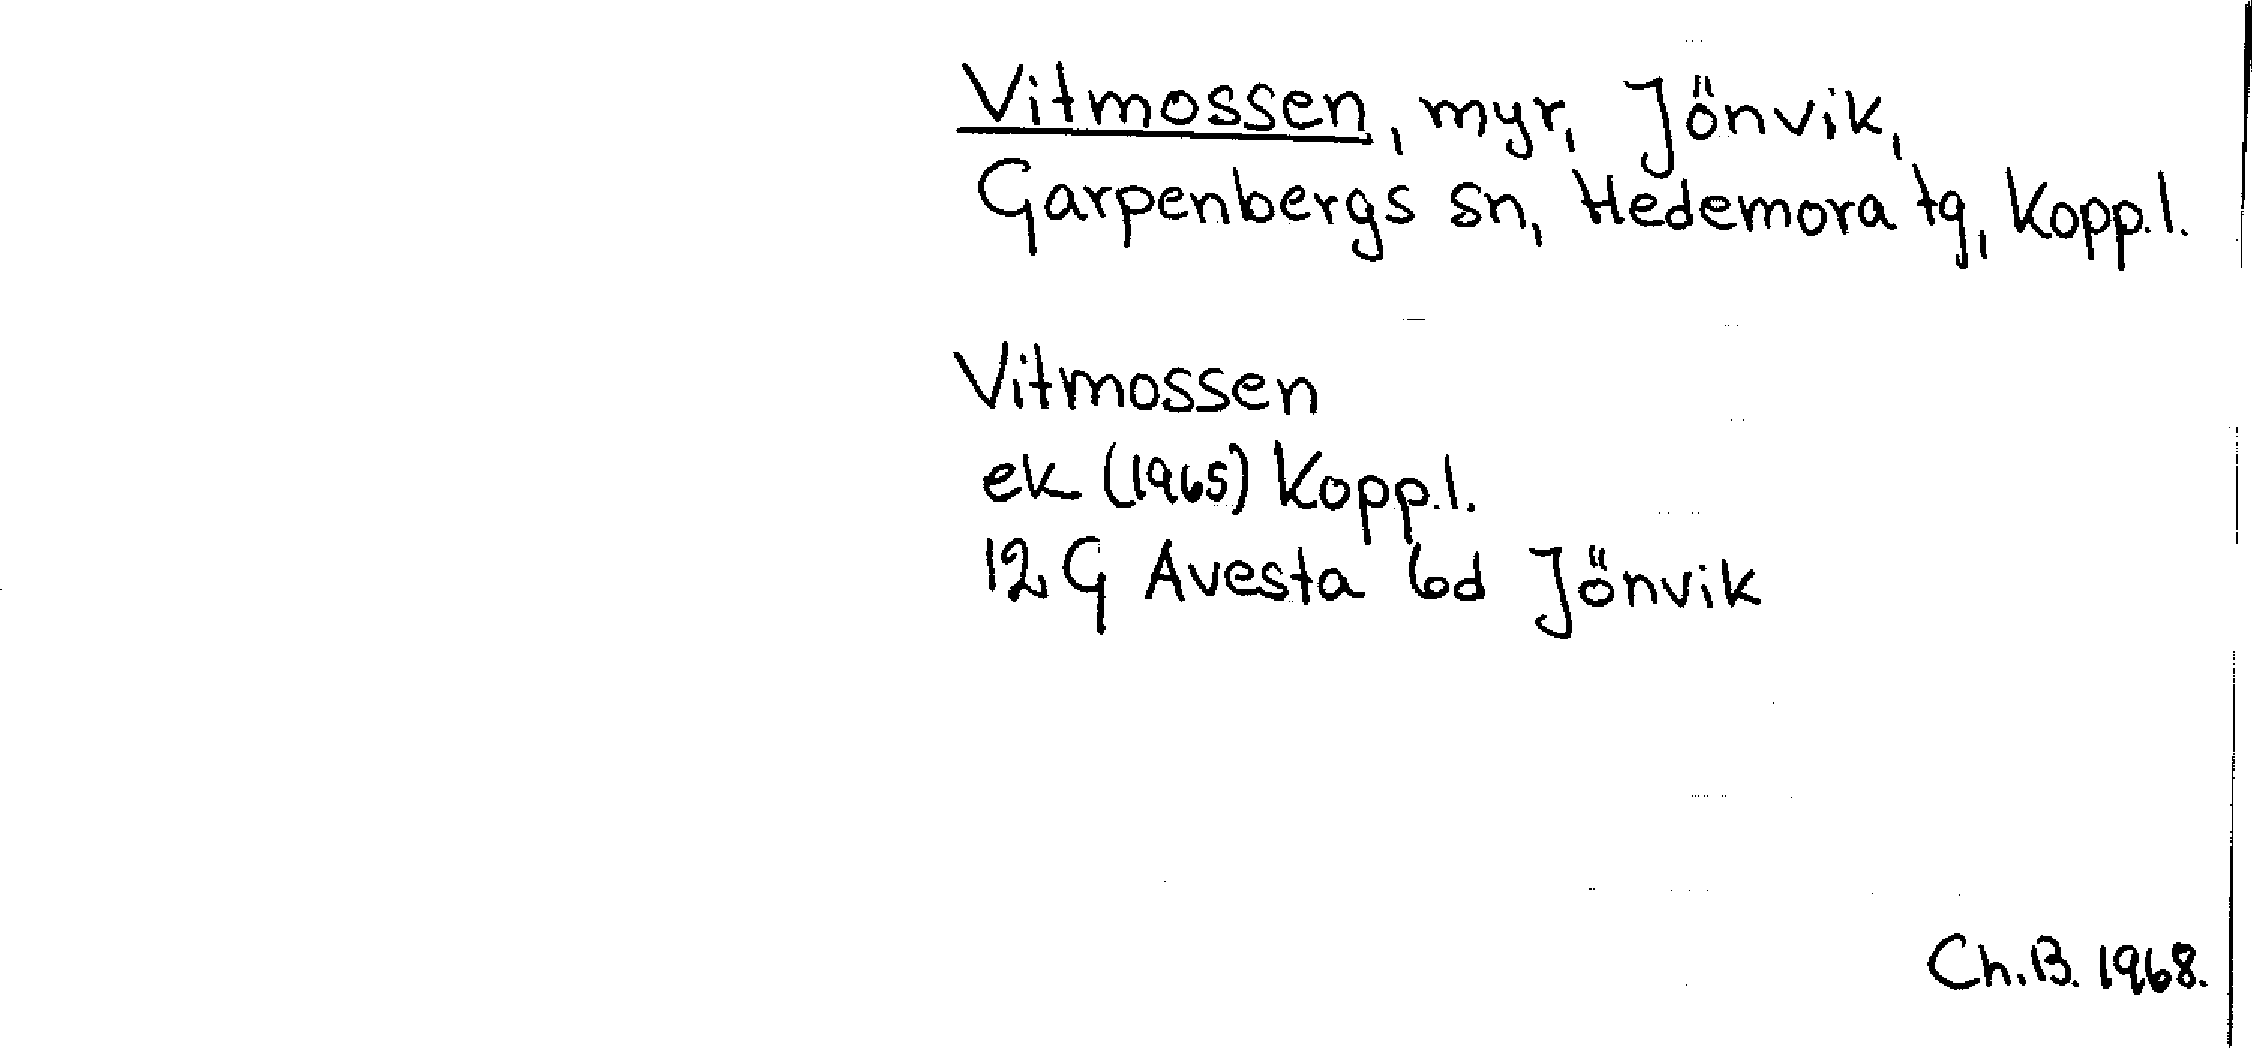 Vitmossen, myr, Jönvik,
Garpenbergs sn, Hedemora tg, Kopp.l.
Vitmossen
ek (1965) Kopp.l.
12 G Avesta 6d Jönvik
Ch.B. 1968.